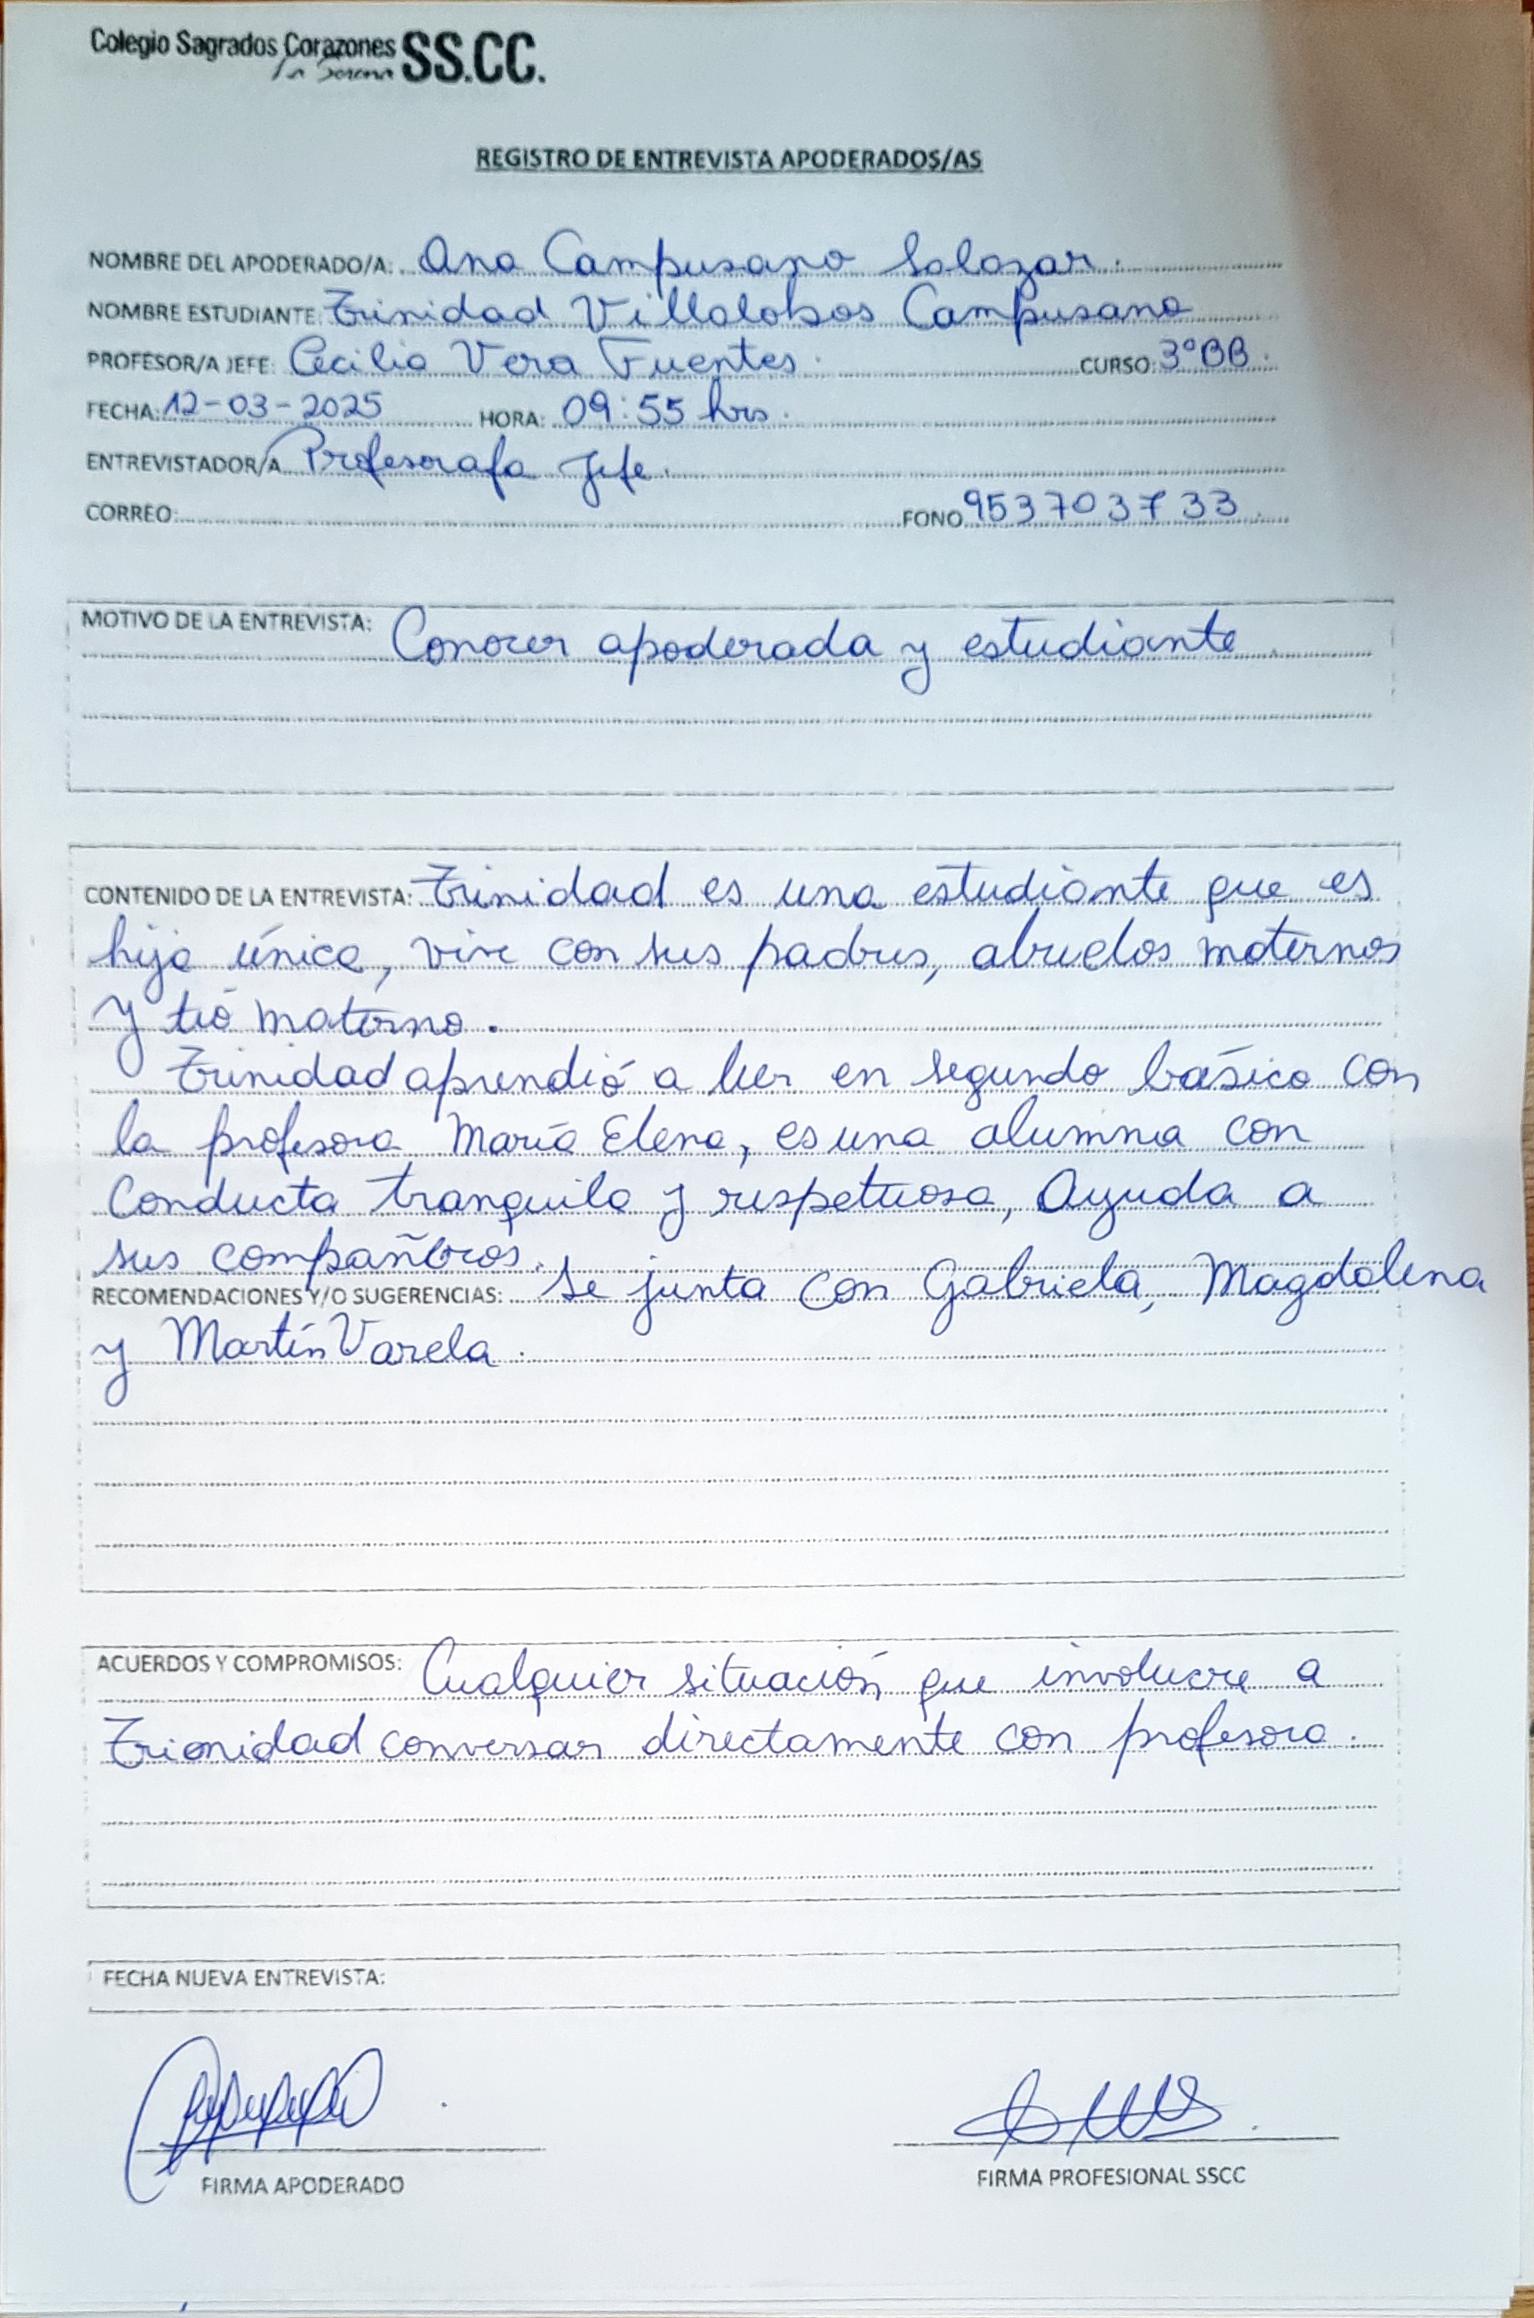 Colegio Sagrados Corazones SS.CC.
La Serena
REGISTRO DE ENTREVISTA APODERADOS/AS
NOMBRE DEL APODERADO/A: Ana Campusano Salazar.
NOMBRE ESTUDIANTE: Trinidad Villalobos Campusano
PROFESOR/A JEFE: Cecilia Vera Fuentes. CURSO: 3°BB.
FECHA: 12-03-2025 HORA: 09:55 hrs.
ENTREVISTADOR/A Profesorafa Jefe.
CORREO: FONO 953703733
MOTIVO DE LA ENTREVISTA: Conocer apoderada y estudiante
CONTENIDO DE LA ENTREVISTA: Trinidad es una estudiante que es
hija única, vive con sus padres, abuelos maternos
y tió materno.
Trinidad aprendió a leer en segundo básico con
la profesora María Elena, es una alumna con
conducta tranquila y respetuosa, Ayuda a
sus compañeros.
RECOMENDACIONES Y/O SUGERENCIAS: Se junta con Gabriela, Magdalena
y Martín Varela.
ACUERDOS Y COMPROMISOS: Cualquier situación que involucre a
Trionidad conversar directamente con profesora.
FECHA NUEVA ENTREVISTA:
FIRMA APODERADO FIRMA PROFESIONAL SSCC